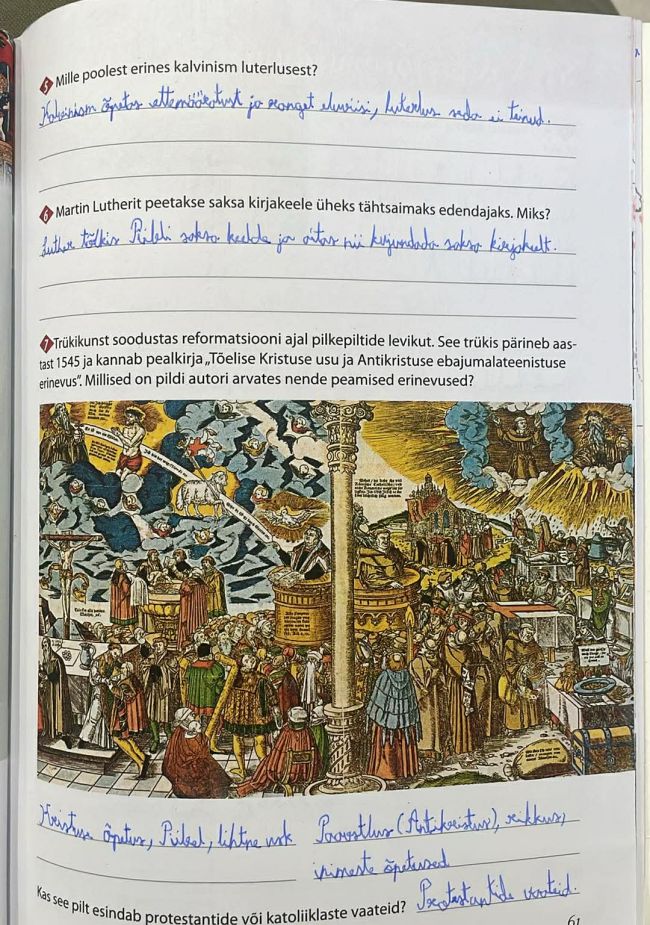 5 Mille poolest erines kalvinism luterlusest?
Kalvinism õpetas ettemääratust ja ranget eluviisi, luterlus seda ei teinud.
6 Martin Lutherit peetakse saksa kirjakeele üheks tähtsaimaks edendajaks. Miks?
Luther tõlkis Piibli saksa keelde ja aitas nii kujundada saksa kirjakeelt.
7 Trükikunst soodustas reformatsiooni ajal pilkepiltide levikut. See trükis pärineb aas-
tast 1545 ja kannab pealkirja „Tõelise Kristuse usu ja Antikristuse ebajumalateenistuse
erinevus”. Millised on pildi autori arvates nende peamised erinevused?
Kristuse õpetus, Piibel, lihtne usk
Paavstlus (Antikristus), rikkus,
inimeste õpetused
Kas see pilt esindab protestantide või katoliiklaste vaateid? Protestantide vaateid.
61